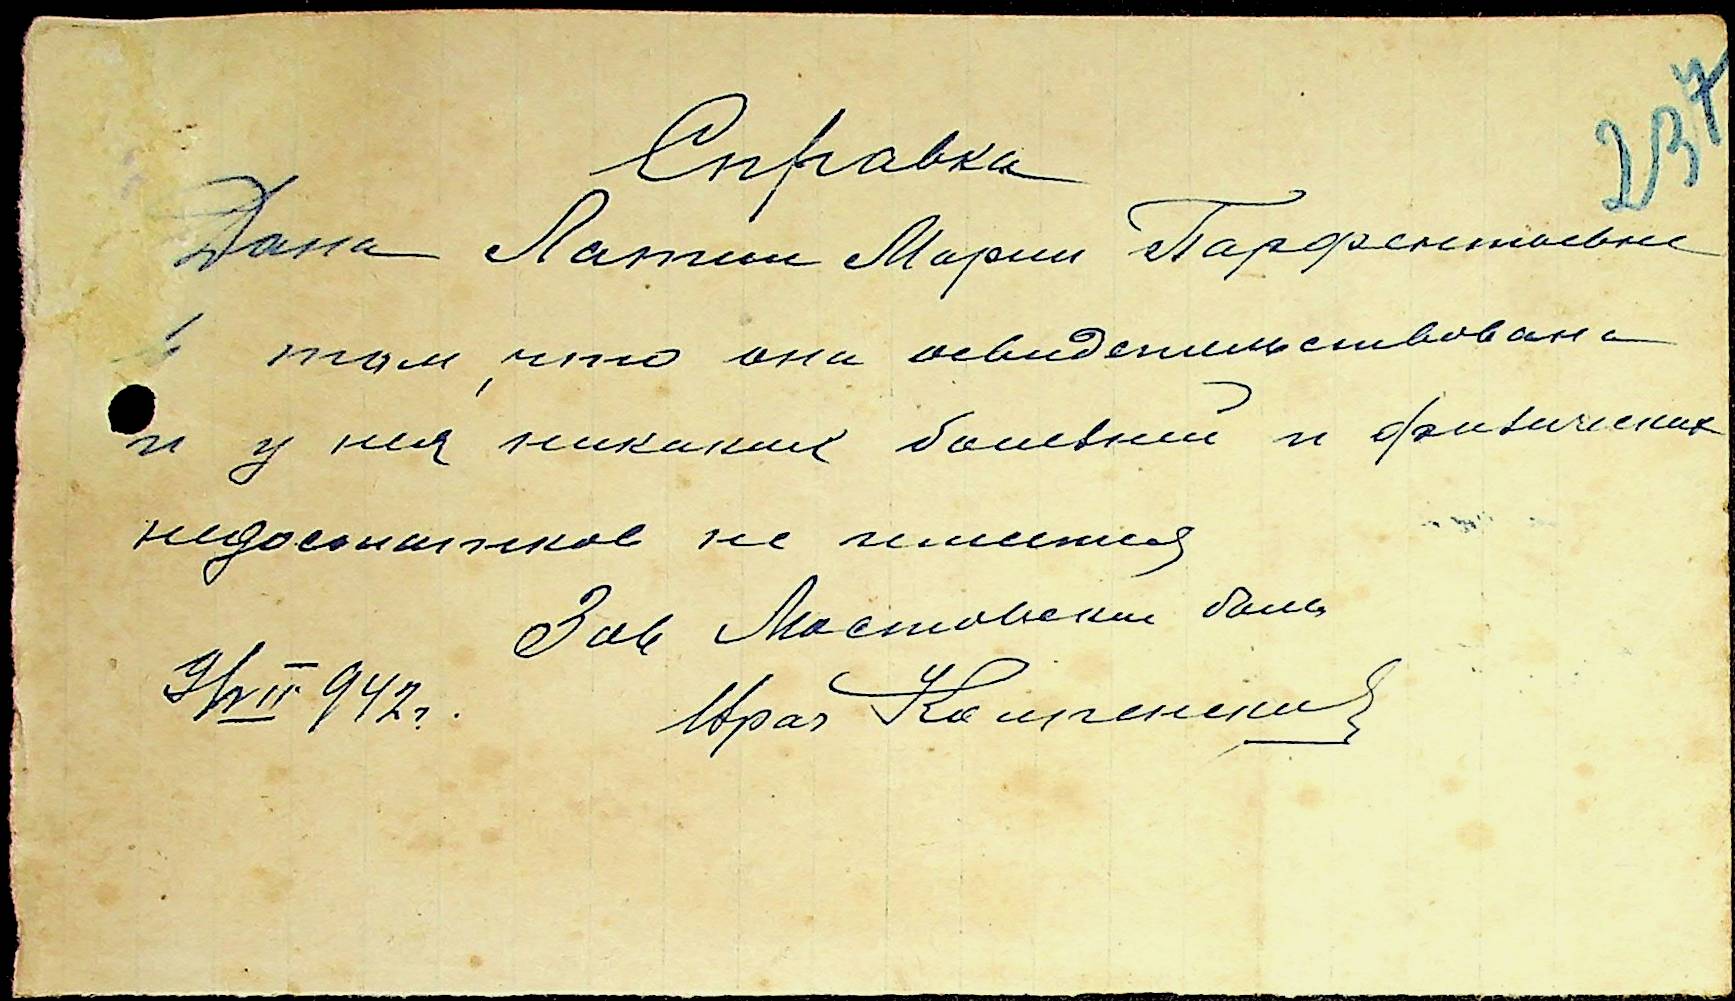 237
Справка
Дана Лапти Марии Парфентьевне
в том, что она освидетельствована
и у нея никаких болезней и физических
недостатков не имеется
Зав Мостовской боль
9/VII 942 г.
Врач